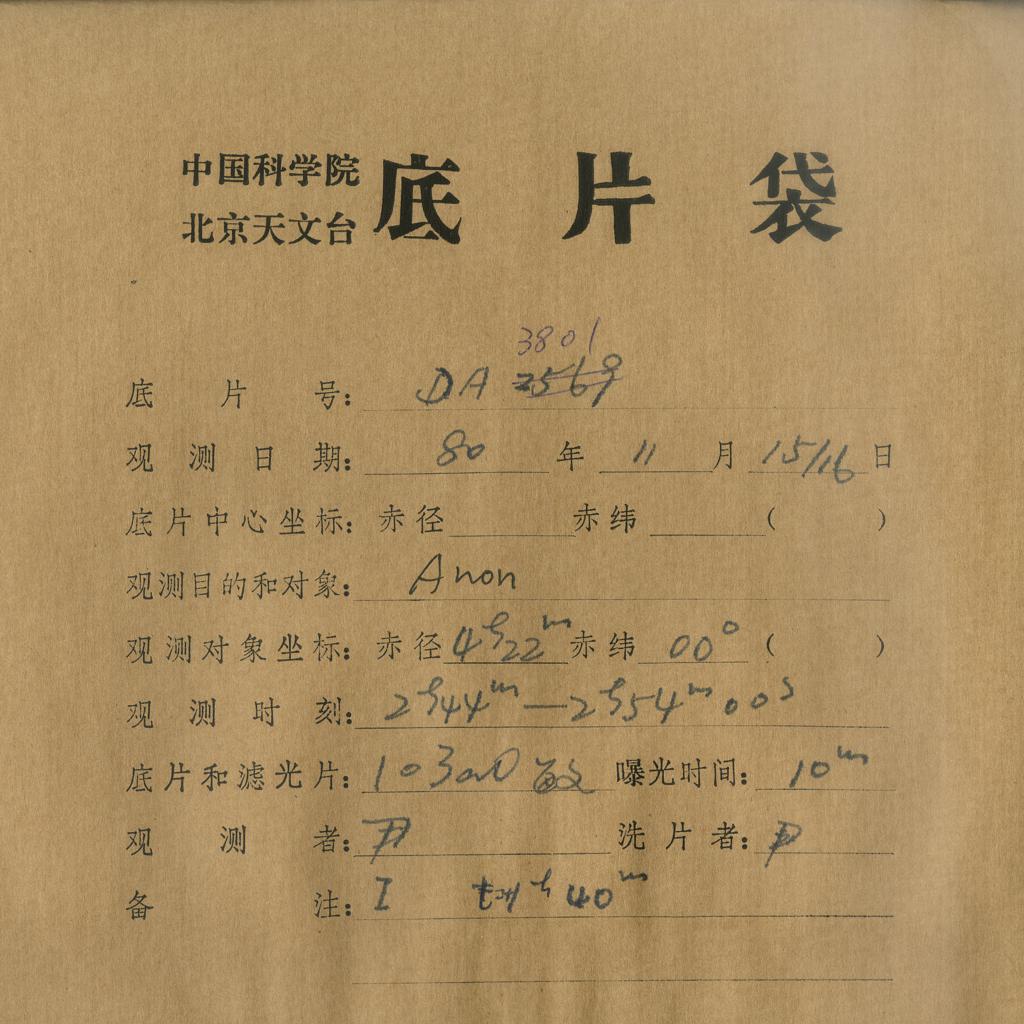 中国科学院
北京天文台 底片袋
3801
底片号: DA 2569
观测日期: 80 年 11 月 15/16 日
底片中心坐标: 赤径 赤纬 ( )
观测目的和对象: Anon
观测对象坐标: 赤径 4h22m 赤纬 00° ( )
观测时刻: 2h44m—2h54m00s
底片和滤光片: 103aO 敏 曝光时间: 10m
观测者: 尹 洗片者: 尹
备注: I 40m